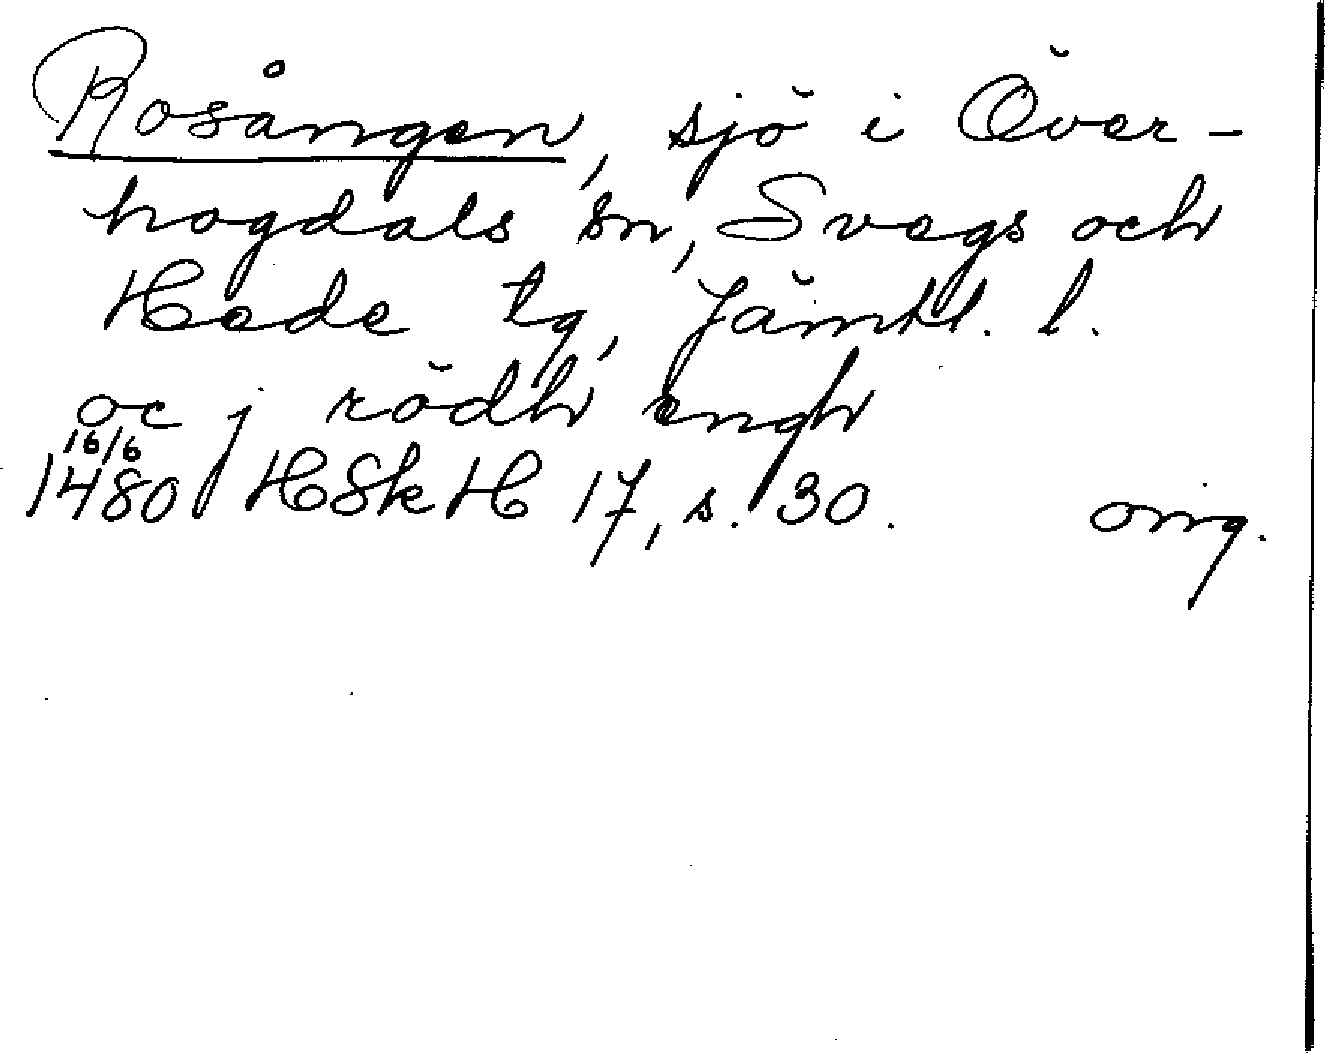 Rosången, sjö i Över-
hogdals sn, Svegs och
Hede tg, Jämtl. l.
oc j rödh engh
16/6
1480 HSkH 17, s. 30. orig.